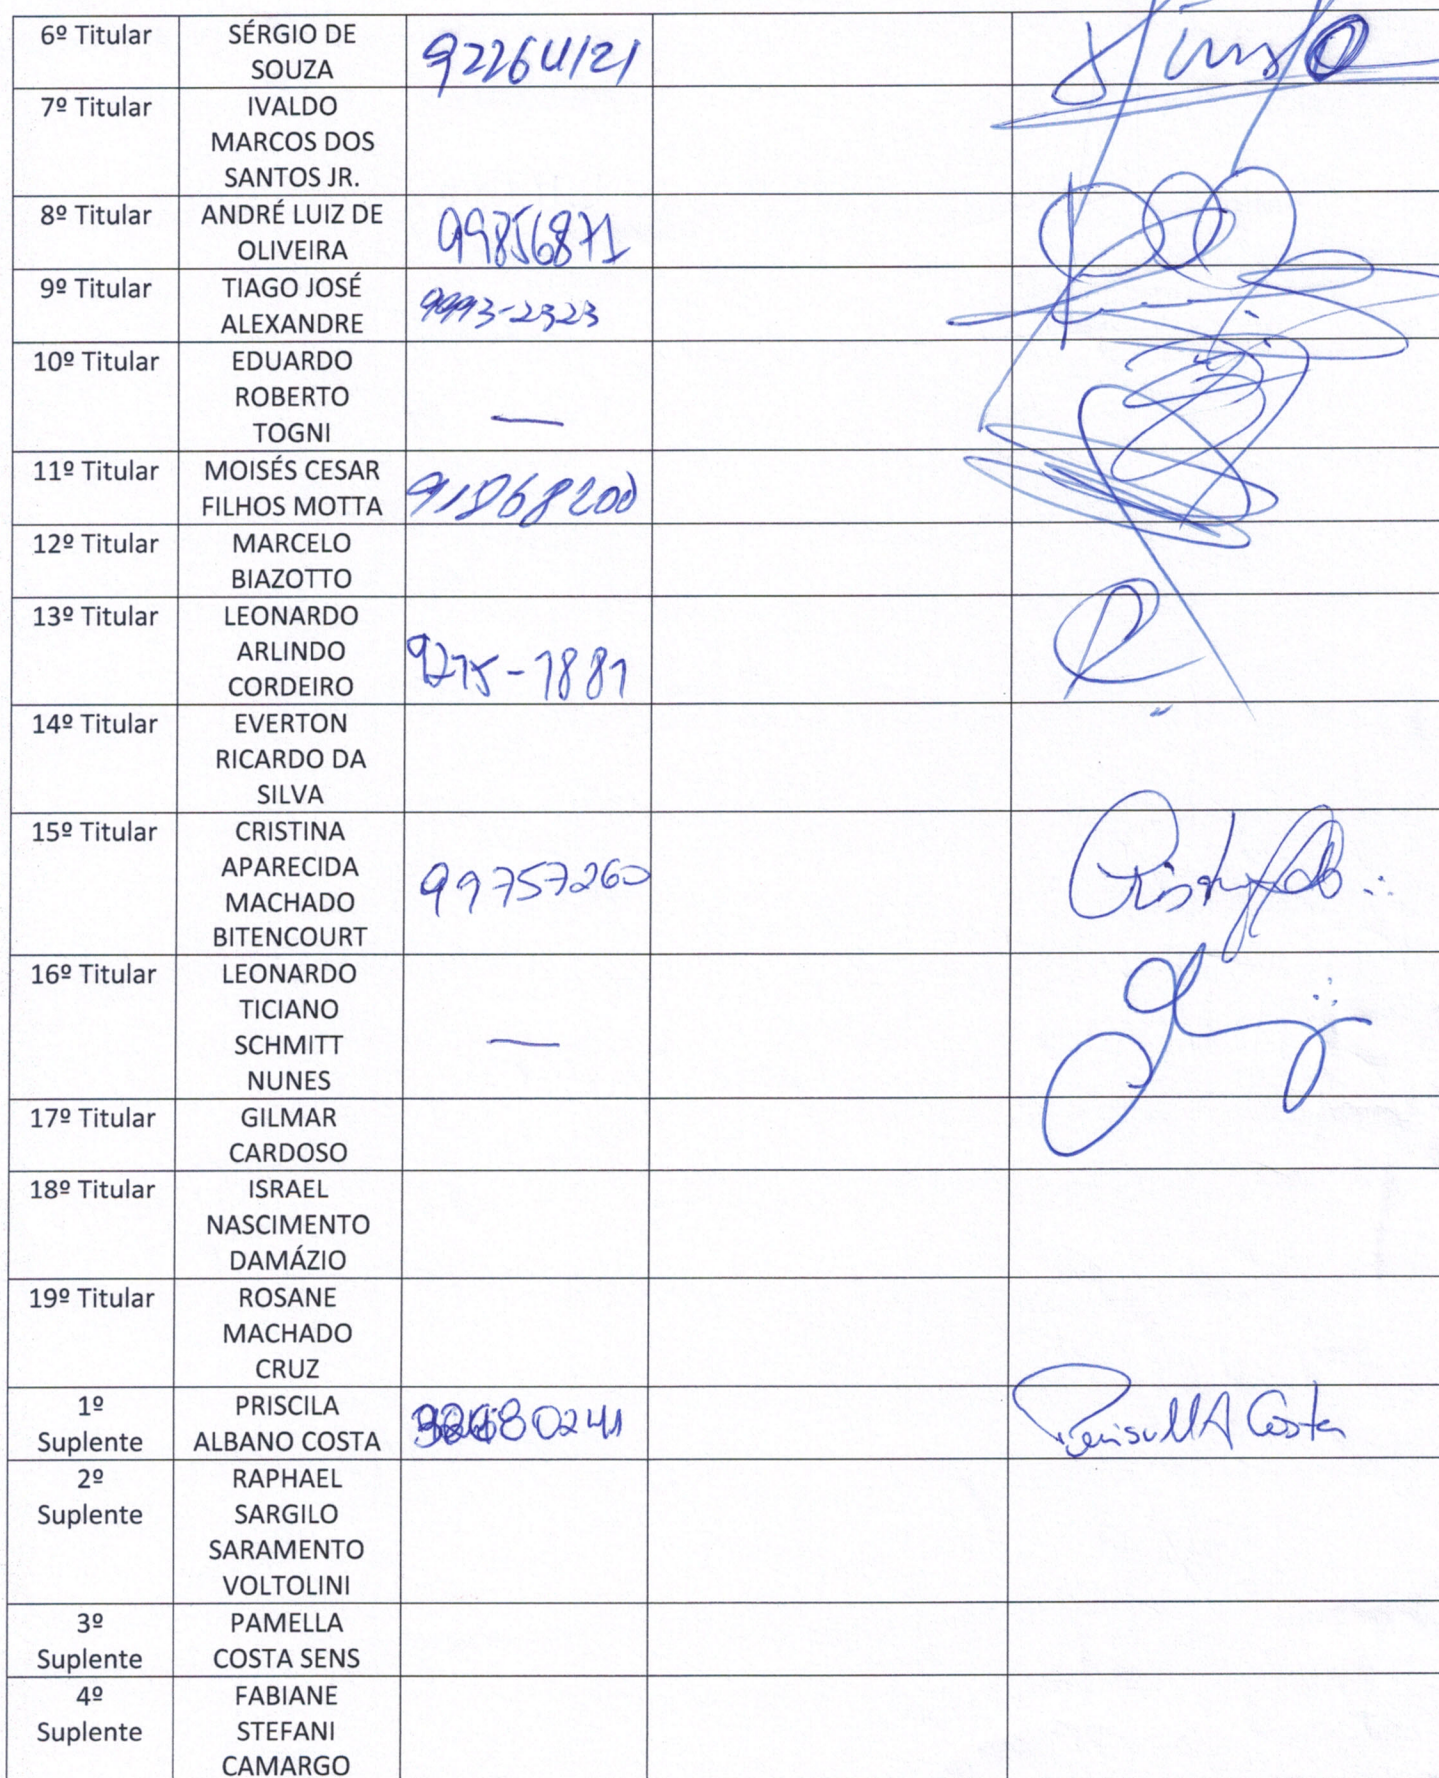 6º Titular
SÉRGIO DE
SOUZA
92264121
7º Titular
IVALDO
MARCOS DOS
SANTOS JR.
8º Titular
ANDRÉ LUIZ DE
OLIVEIRA
99856871
9º Titular
TIAGO JOSÉ
ALEXANDRE
9993-2323
10º Titular
EDUARDO
ROBERTO
TOGNI
—
11º Titular
MOISÉS CESAR
FILHOS MOTTA
91868200
12º Titular
MARCELO
BIAZOTTO
13º Titular
LEONARDO
ARLINDO
CORDEIRO
9275-1881
14º Titular
EVERTON
RICARDO DA
SILVA
15º Titular
CRISTINA
APARECIDA
MACHADO
BITENCOURT
99757260
16º Titular
LEONARDO
TICIANO
SCHMITT
NUNES
—
17º Titular
GILMAR
CARDOSO
18º Titular
ISRAEL
NASCIMENTO
DAMÁZIO
19º Titular
ROSANE
MACHADO
CRUZ
1º
Suplente
PRISCILA
ALBANO COSTA
Costa
2º
Suplente
RAPHAEL
SARGILO
SARAMENTO
VOLTOLINI
3º
Suplente
PAMELLA
COSTA SENS
4º
Suplente
FABIANE
STEFANI
CAMARGO